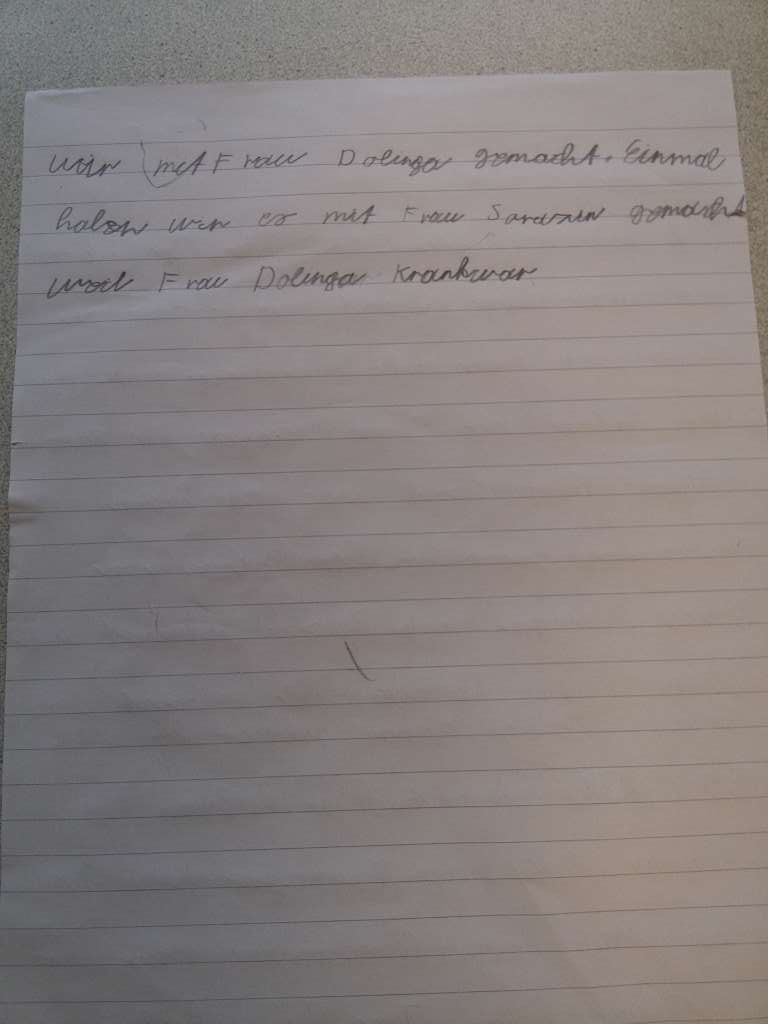 wir mit Frau Dolinga gemacht. Einmal
haben wir es mit Frau Sarazin gemacht
weil Frau Dolinga Krankwar